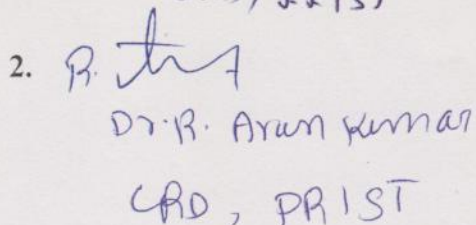 2. R.
Dr. R. Arun Kumar
CRD, PRIST